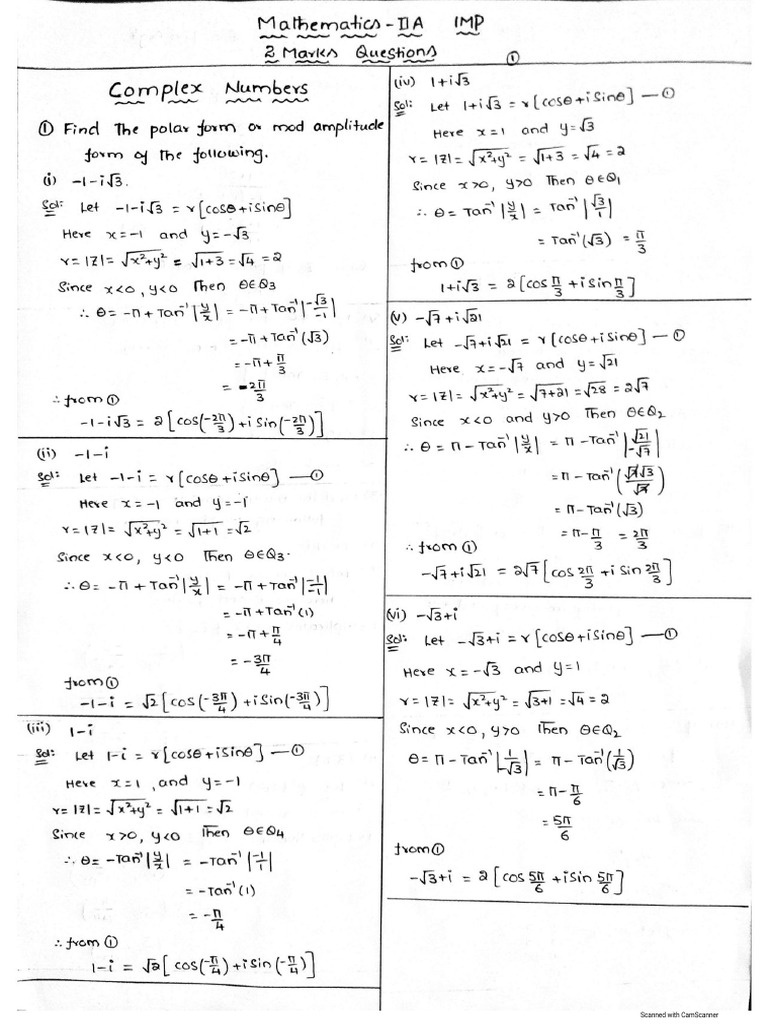 Mathematics-IIA IMP
2 Marks Questions
①
Complex Numbers
① Find The polar form or mod amplitude
form of the following.
(i) -1-i√3.
Sol: Let -1-i√3 = r[cosθ+isinθ]
Here x=-1 and y=-√3
r=|z|=√x²+y² = √1+3 = √4 = 2
Since x<0, y<0 Then θ∈Q₃
∴ θ = -π+Tan⁻¹|y/x| = -π+Tan⁻¹|-√3/-1|
= -π+Tan⁻¹(√3)
= -π+π/3
= -2π/3
∴ from ①
-1-i√3 = 2[cos(-2π/3)+i sin(-2π/3)]
(ii) -1-i
Sol: Let -1-i = r[cosθ+isinθ] —①
Here x=-1 and y=-1
r=|z|=√x²+y² = √1+1 = √2
Since x<0, y<0 Then θ∈Q₃.
∴ θ = -π+Tan⁻¹|y/x| = -π+Tan⁻¹|-1/-1|
= -π+Tan⁻¹(1)
= -π+π/4
= -3π/4
from ①
-1-i = √2[cos(-3π/4)+isin(-3π/4)]
(iii) 1-i
Sol: Let 1-i = r[cosθ+isinθ] —①
Here x=1, and y=-1
r=|z|=√x²+y² = √1+1 = √2
Since x>0, y<0 Then θ∈Q₄
∴ θ = -Tan⁻¹|y/x| = -Tan⁻¹|-1/1|
= -Tan⁻¹(1)
= -π/4
∴ from ①
1-i = √2[cos(-π/4)+isin(-π/4)]
(iv) 1+i√3
Sol: Let 1+i√3 = r[cosθ+isinθ] —①
Here x=1 and y=√3
r=|z|=√x²+y² = √1+3 = √4 = 2
Since x>0, y>0 Then θ∈Q₁
∴ θ = Tan⁻¹|y/x| = Tan⁻¹|√3/1|
= Tan⁻¹(√3) = π/3
from ①
1+i√3 = 2[cos π/3 + isin π/3]
(v) -√7+i√21
Sol: Let -√7+i√21 = r[cosθ+isinθ] —①
Here x=-√7 and y=√21
r=|z|=√x²+y² = √7+21 = √28 = 2√7
Since x<0 and y>0 Then θ∈Q₂
∴ θ = π-Tan⁻¹|y/x| = π-Tan⁻¹|√21/-√7|
= π-Tan⁻¹(√7√3/√7)
= π-Tan⁻¹(√3)
= π-π/3 = 2π/3
∴ from ①
-√7+i√21 = 2√7[cos 2π/3 + i sin 2π/3]
(vi) -√3+i
Sol: Let -√3+i = r[cosθ+isinθ] —①
Here x=-√3 and y=1
r=|z|=√x²+y² = √3+1 = √4 = 2
Since x<0, y>0 Then θ∈Q₂
θ = π-Tan⁻¹|1/-√3| = π-Tan⁻¹(1/√3)
= π-π/6
= 5π/6
from ①
-√3+i = 2[cos 5π/6 + isin 5π/6]
Scanned with CamScanner